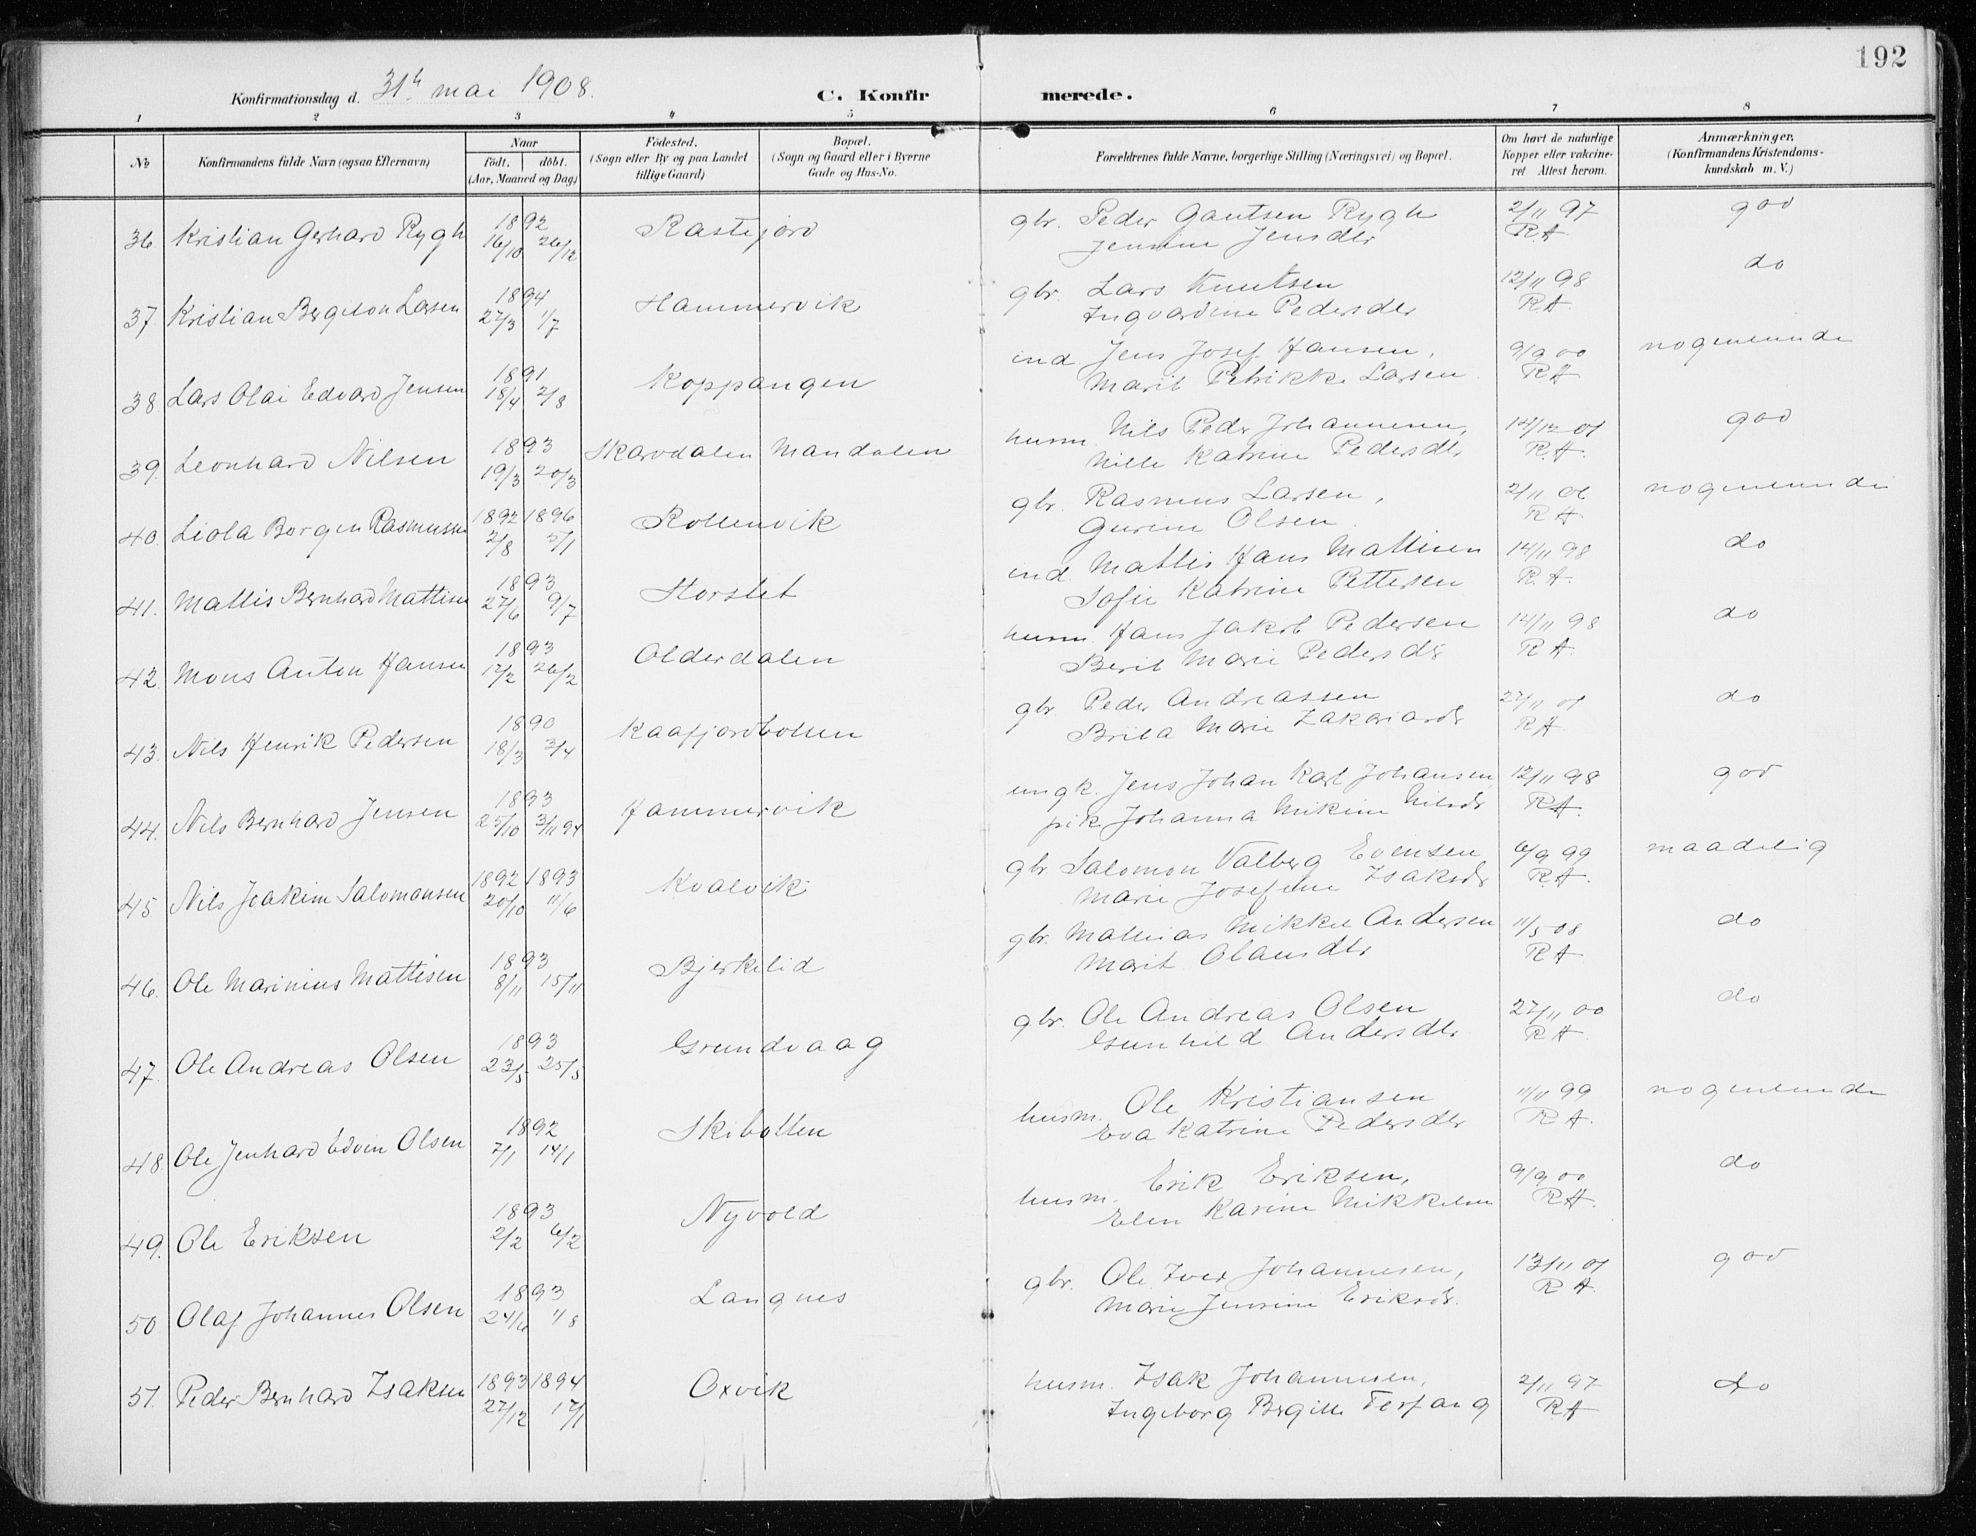 192
Konfirmationsdag d. 31te mai 1908.
C. Konfirmerede.
1 2 3 4 5 6 7 8
No Konfirmandens fulde Navn (ogsaa Efternavn) Naar født. døbt. (Aar, Maaned og Dag) Fødested. (Sogn eller By og paa Landet tillige Gaard) Bopæl. (Sogn og Gaard eller i Byerne Gade og Hus-No. Forældrenes fulde Navne, borgerlige Stilling (Næringsvei) og Bopæl. Om havt de naturlige Kopper eller vakcineret. Attest herom. Anmærkninger. (Konfirmandens Kristendomskundskab m. V.)
36 Kristian Gerhard Rygh 1892 16/10 26/12 Rastefjord gbr. Peder Gautsen Rygh Jensine Jensdtr 2/11 97 R.A. god
37. Kristian Bergiton Larsen 1894 27/3 1/7 Hammervik gbr. Lars Knutsen Ingvardine Pedersdtr 12/11 98 R.A. do
38 Lars Olai Edvard Jensen 1891 18/4 2/8 Koppangen ind. Jens Josef Hansen, Marit Petrikke Larsen 9/9 00 R.A. nogenlunde
39. Leonhard Nilsen 1893 19/3 20/3 Skardalen Mandalen husm. Nils Peder Johannesen, Nille Katrine Pedersdtr 14/12 01 R.A. god
40. Liola Borgen Rasmussen 1892 2/8 1896 5/1 Rottenvik gbr. Rasmus Larsen, Gurine Olsen 2/11 06 R.A. nogenlunde
41. Mattis Bernhard Mattisen 1893 27/6 9/7 Storslet ind. Mattis Hans Mattisen Sofie Katrine Pettersen 14/11 98 R.A. do
42. Mons Anton Hansen 1893 17/2 26/2 Olderdalen husm. Hans Jakob Pedersen Berit Marie Pedersdtr 14/11 98 R.A. do
43. Nils Henrik Pedersen 1890 18/3 3/4 Kaafjordbotten gbr. Peder Andreassen Brita Marie Zakariasdtr 27/11 01 R.A. do
44. Nils Bernhard Jensen 1893 25/10 3/11 94 Hammervik ungk. Jens Johan Karl Johansen, pik. Johanna Nikine Nilsdtr 12/11 98 R.A. god
45 Nils Joakim Salomonsen 1892 20/10 1893 11/6 Kvalvik gbr. Salomon Valberg Evensen Marie Josefine Isaksdtr 6/9 99 R.A. maadelig
46. Ole Marinius Mattisen 1893 8/11 15/11 Bjerkelid gbr. Mathias Mikkel Andersen Marit Olausdtr 11/5 08 R.A. do
47. Ole Andreas Olsen 1893 23/5 25/5 Grundvaag gbr. Ole Andreas Olsen Gunhild Andersdtr 27/11 00 R.A. do
48. Ole Jenhard Edvin Olsen 1892 7/1 14/1 Skibotten husm. Ole Kristiansen Eva Katrine Pedersdtr 11/11 99 R.A. nogenlunde
49. Ole Eriksen 1893 2/2 6/2 Nyvold husm. Erik Eriksen, Elen Karine Mikkelsen 9/9 00 R.A. do
50. Olaf Johannes Olsen 1893 24/6 1/8 Langnes gbr. Ole Iver Johannesen, Marie Jensine Eriksdtr. 13/11 01 R.A. god
51. Peder Bernhard Isaksen 1893 27/12 1894 17/1 Oxvik husm. Isak Johannesen, Ingeborg Bergitte Ferfang 2/11 97 R.A. do